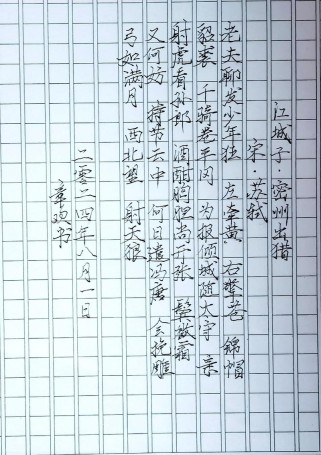 江城子·密州出猎
宋·苏轼
老夫聊发少年狂 左牵黄 右擎苍 锦帽
貂裘 千骑卷平冈 为报倾城随太守 亲
射虎看孙郎 酒酣胸胆尚开张 鬓微霜
又何妨 持节云中 何日遣冯唐 会挽雕
弓如满月 西北望 射天狼
二零二四年八月一日
章欢书